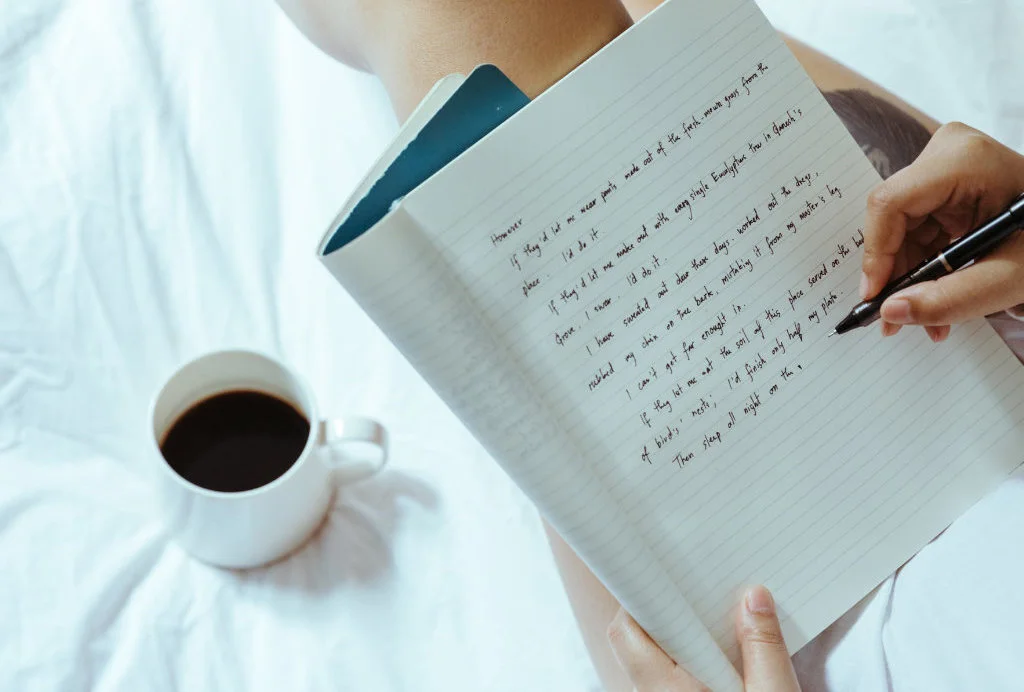 However
If they'd let me wear pants made out of the fresh-mown grass from the
place. I'd do it.
If they'd let me make out with every single Eucalyptus tree in Qanesh's
Grove. I swear. I'd do it.
I have sweated out dew these days.. worked out the dregs,
Rubbed my chin on the bark, mistaking it from my master's leg
I can't get far enough in.
If they let me eat the soil of this place served on the
of birds' nests; I'd finish only half my plate.
Then sleep all night on the